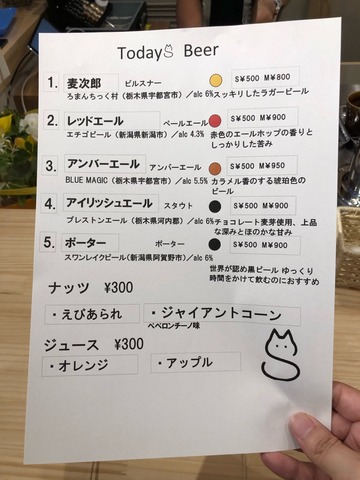 Today's Beer
1. 麦次郎 ピルスナー S¥500 M¥800
ろまんちっく村（栃木県宇都宮市）／alc 6% スッキリしたラガービール
2. レッドエール ペールエール S¥500 M¥900
エチゴビール（新潟県新潟市）／alc 4.3% 赤色のエールホップの香りと
しっかりした苦み
3. アンバーエール アンバーエール S¥500 M¥950
BLUE MAGIC（栃木県宇都宮市）／alc 5.5% カラメル香のする琥珀色の
ビール
4. アイリッシュエール スタウト S¥500 M¥900
プレストンエール（栃木県河内郡）／alc 6% チョコレート麦芽使用、上品
な深みとほのかな甘み
5. ポーター ポーター S¥500 M¥900
スワンレイクビール（新潟県阿賀野市）／alc 6%
世界が認め黒ビール ゆっくり
時間をかけて飲むのにおすすめ
ナッツ ¥300
・えびあられ ・ジャイアントコーン
ペペロンチーノ味
ジュース ¥300
・オレンジ ・アップル